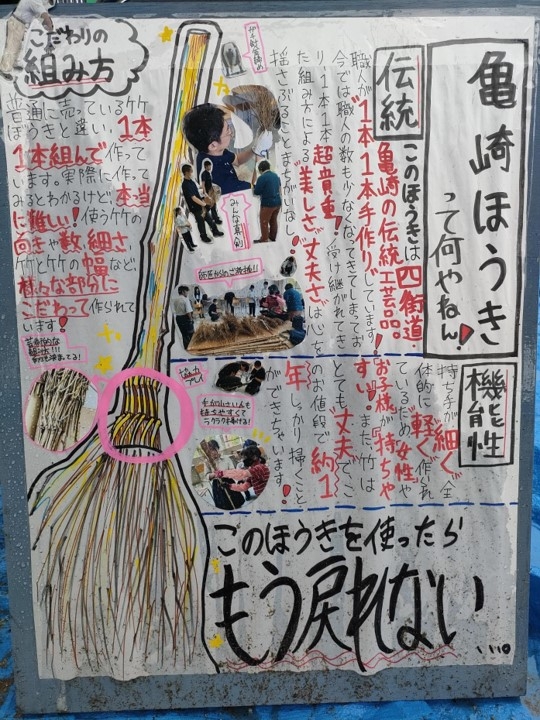 亀崎ほうき
って何やねん!
伝統
このほうきは四街道
亀崎の伝統工芸品。
職人が1本1本手作りしています!
今では職人の数も少なくなってきてしまってお
り1本1本超貴重!受け継がれてき
た組み方による美しさ、丈夫さは心を
揺さぶることまちがいなし!
機能性
持ち手が細く、全
体的に軽く作られ
ているため女性や
お子様が持ちや
すい。また、竹は
とても丈夫でこ
のお値段で約1
年しっかり掃くこと
ができちゃいます!
こだわりの
組み方
普通に売っている竹
ぼうきと違い、1本
1本組んで作って
います。実際に作って
みるとわかるけど、本当
に難しい!使う竹の
向きや数、細さ、
竹と竹の幅など、
様々な部分に
こだわって作られて
います!
みんな真剣
このほうきを使ったら
もう戻れない